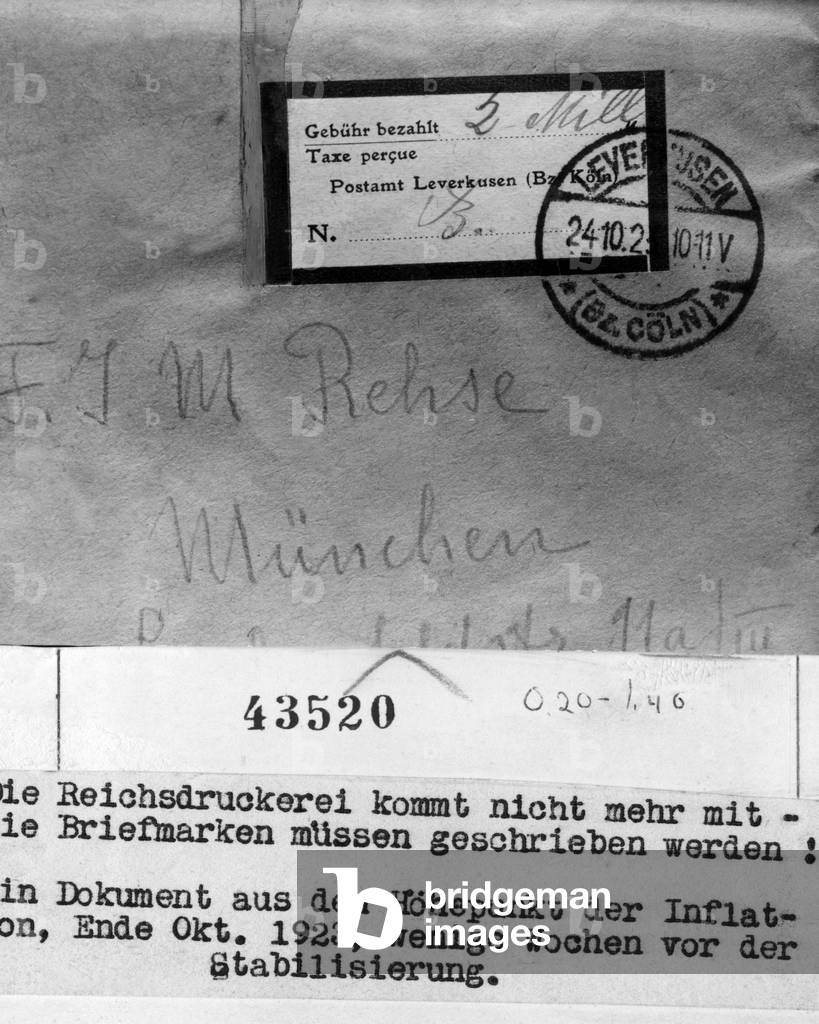 Gebühr bezahlt 2 Mill
Taxe perçue
Postamt Leverkusen (Bz. Köln)
N.
LEVERKUSEN
24.10.2 10-11V
* (Bz. CÖLN) *
F. J. M Rehse
München
11a/III
43520
0.20-1.40
ie Reichsdruckerei kommt nicht mehr mit -
ie Briefmarken müssen geschrieben werden !
in Dokument aus der Höhepunkt der Inflat-
on, Ende Okt. 1923, wenige Wochen vor der
Stabilisierung.
b bridgeman
images